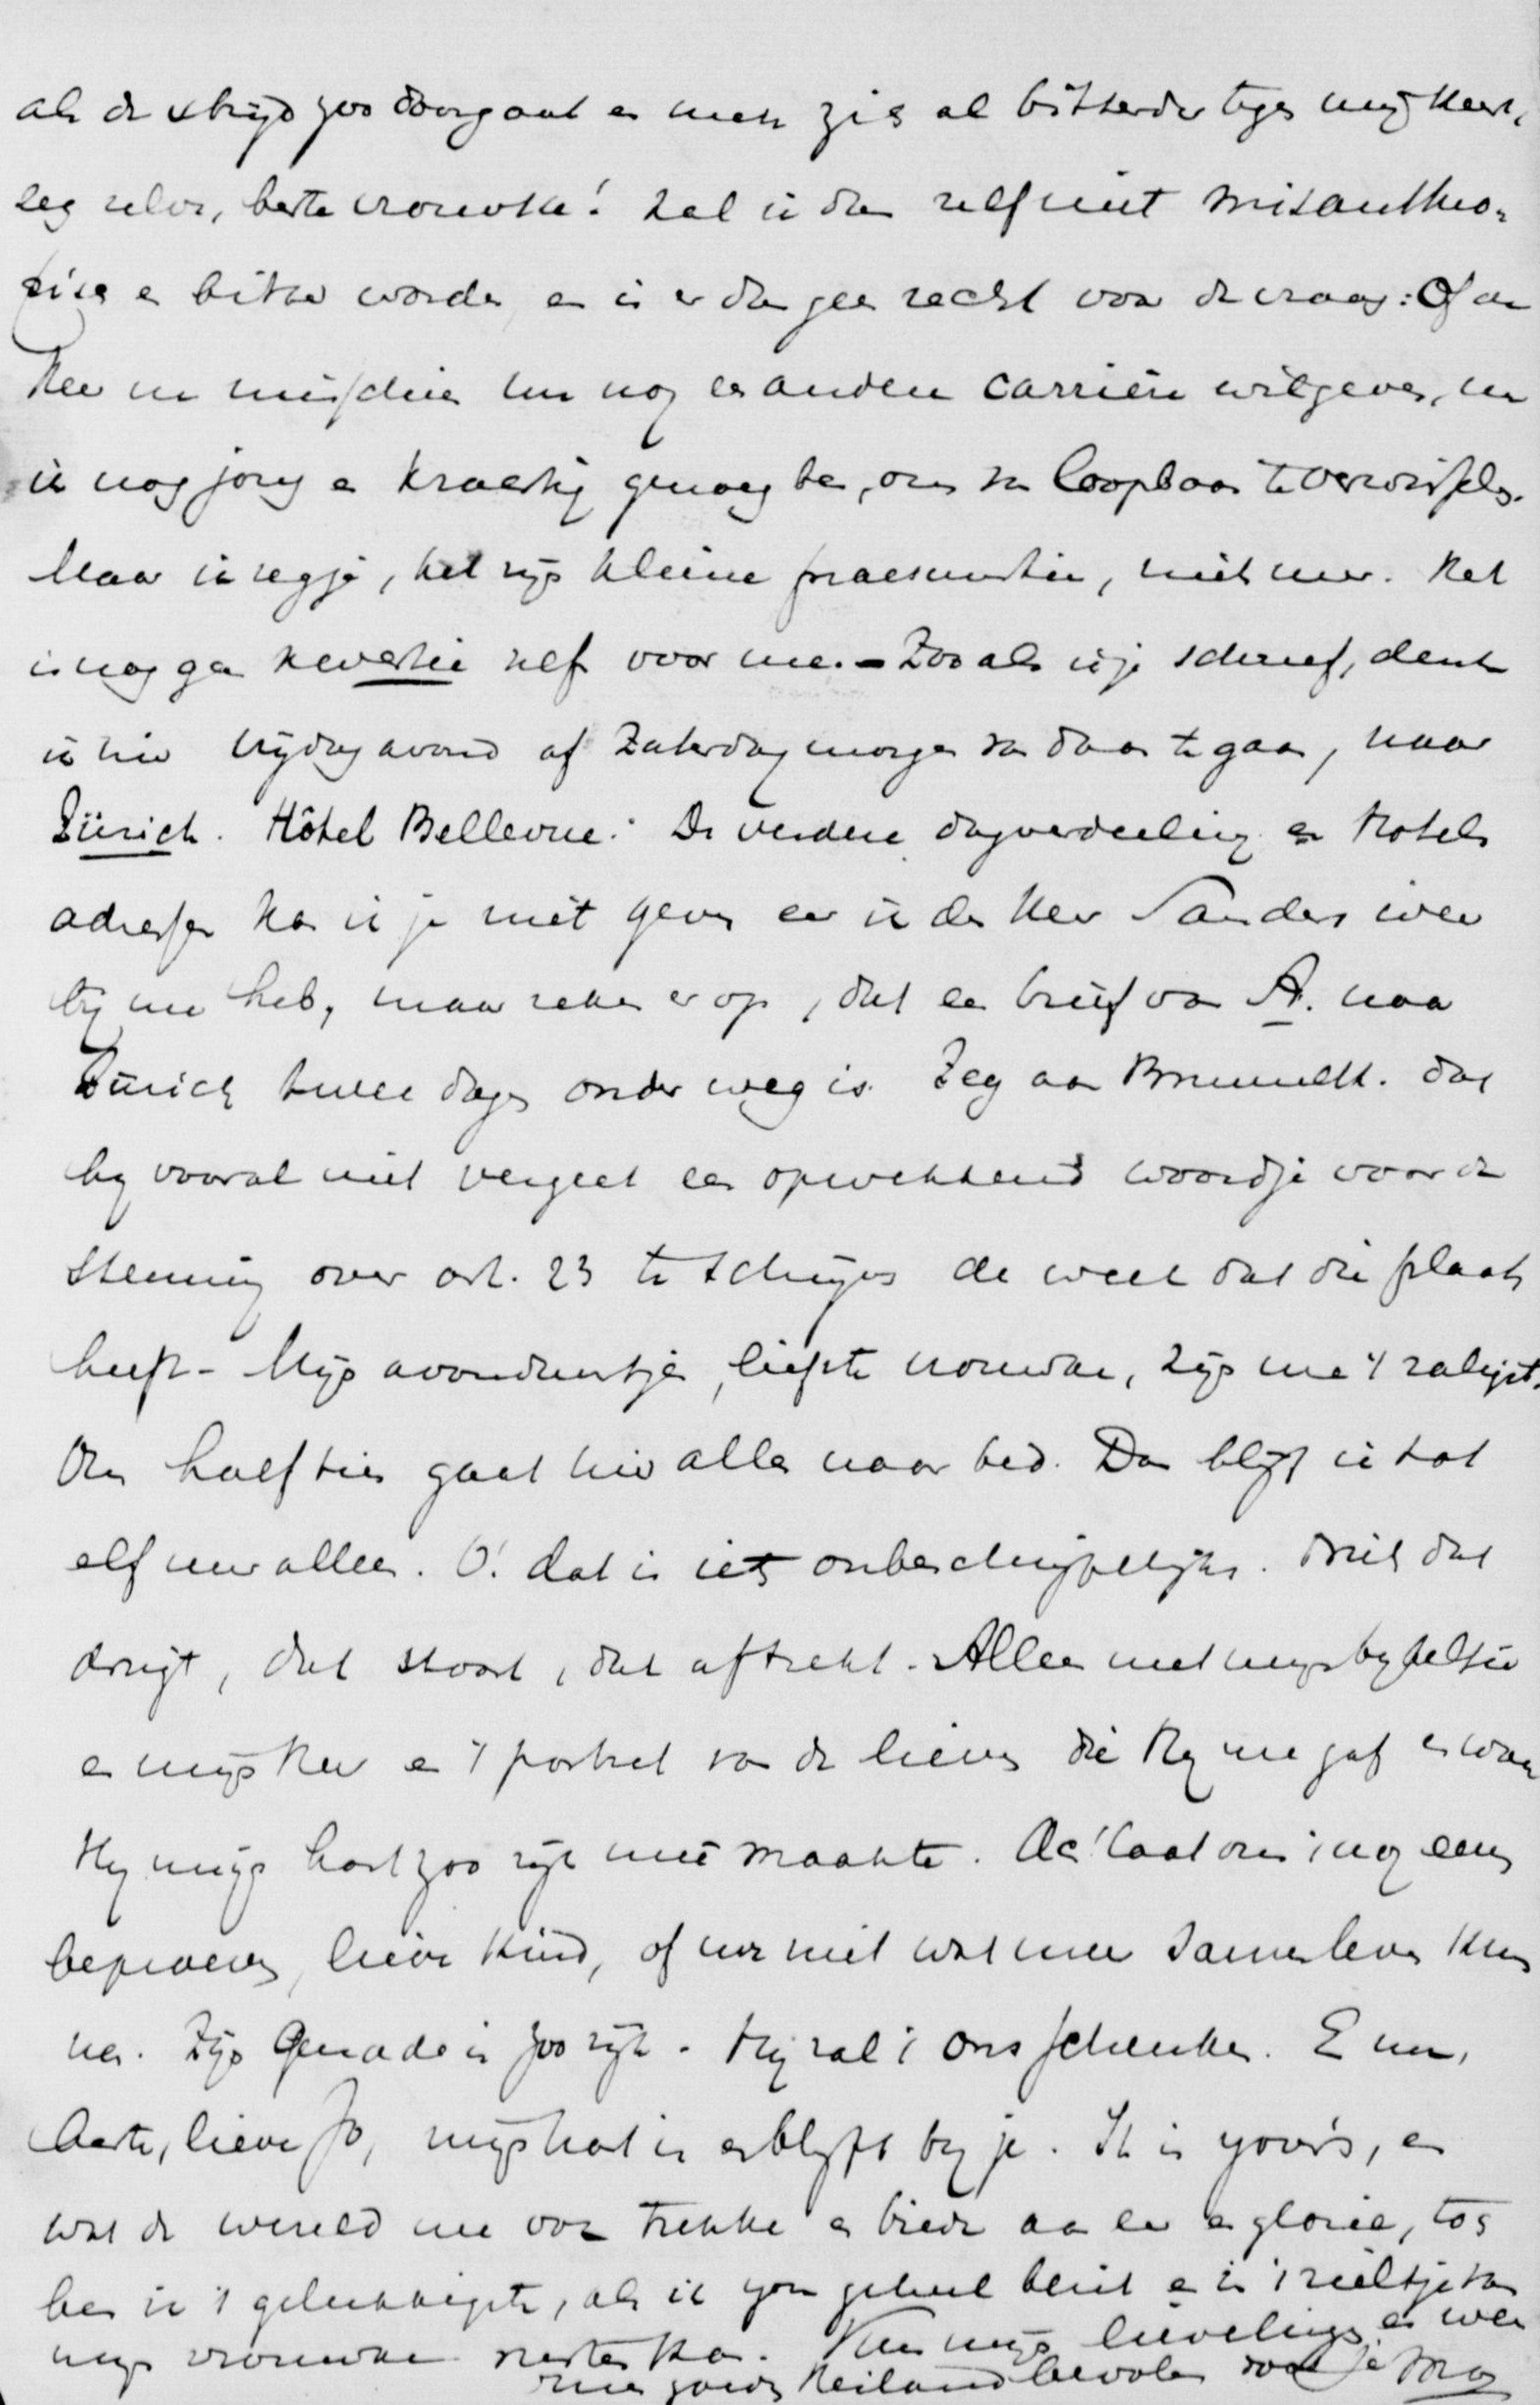 als de strijd zoo doorgaat en men zig al bitterder tegen mij keert,
zeg zelve, beste vrouwke! zal ik dan zelf niet misanthro-
pisc en bitter worden, en is er dan geen recht voor de vraag: Of de
Heer me misschien hier nog een andere carrière wil geven, nu
ik nog jong en krachtig genoeg ben, om van loopbaan te verwisselen.
Maar ik zeg je, het zijn kleine praesumtien, niets meer. Het
is nog geen kwestie zelf voor me. - Zooals ik je schreef, denk
ik hier Vrijdag avond of Zaterdag morgen van daan te gaan, naar
Zürich. Hôtel Bellevue. De verdere dagverdeeling en hotels
adressen kan ik je niet geven eer ik den Heer Sanders weer
bij me heb, maar reken er op, dat een brief van A. naar
Zürich twee dagen onder weg is. Zeg aan Brummelk. dat
hij vooral niet vergeet een opwekkend woordje voor de
stemming over art. 23 te schrijven de week dat die plaats
heeft - Mijn avonduurtjes, liefste vrouwke, zijn me 't zaligst.
Om half tien gaat hier alles naar bed. Dan blijf ik tot
elf uur alleen. O! dat is iets onbeschrijfelijks. Niets dat
dringt, dat stoort, dat aftrekt. Alleen met mijn bijbeltje
en mijn Heer en 't portret van de lieven die Hij me gaf en waar
Hij mijn hart zoo rijk meê maakte. Ac! laat ons 't nog eens
beproeven, lieve kind, of we niet wat meer samenleven kun
nen. Zijn Genade is zoo rijk. Hij zal 't ons schenken. E nu,
beste, lieve Jo, mijn hart is en blijft bij je. It is your's, en
wat de wereld me voor trekke en biede aan eer en glorie, tog
ben ik 't gelukkigste, als ik you geheel bezit en in 't zieltje van
mijn vrouwke nestelen kan. Kus mijn lievelings en wees
onze goede Heiland bevolen van je Bram